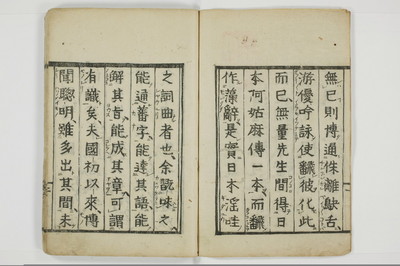 無已則博通侏離鴃舌
游優吟詠使飜彼化此
而已無量先生間得日
本阿姑麻傳一本而飜
作藻辭是實日木淫哇
之詞曲者也余翫味之
能通蕃字能達其語能
解其旨能成其章可謂
有識矣夫國初以來傳
聞聰明雖多出其間未